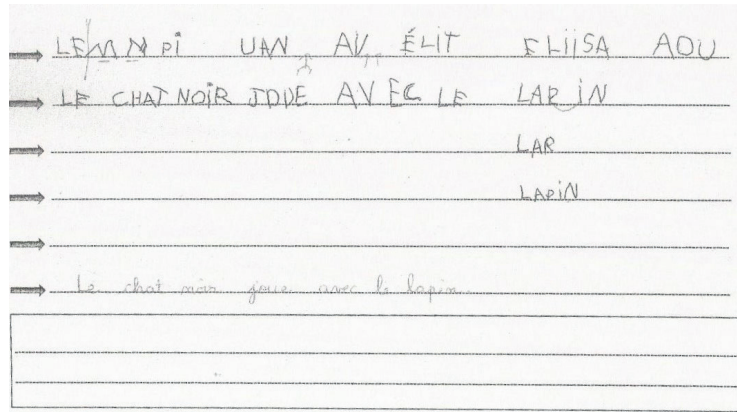 LEMN Pi UAN AV ÉLIT ELIISA AOU
LE CHAT NOiR JOUE AVEC LE LARiN
LAR
LAPiN
Le chat noir joue avec le lapin.